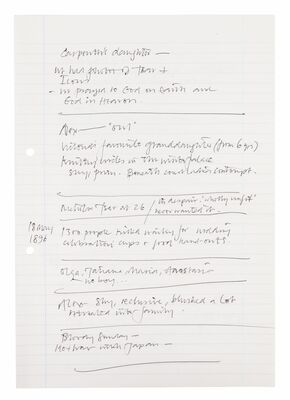 Carpenter's daughter —
we had photos of Tsar +
Icons
- we prayed to God on Earth and
God in Heaven.
Alex — "our"
Victoria's favourite granddaughter (from 6 yrs)
in the winter palace
Shy, prim. Beneath
Tsar at 26 / in despair. "wholly unfit"
never wanted it.
18 May
1896
1300 people killed waiting for
celebration cups + food hand-outs
Olga, Tatiana, Maria, Anastasia
— no boy...
Alex — Shy, reclusive, blushed a lot
retreated into family.
Bloody Sunday —
Hot war with Japan —